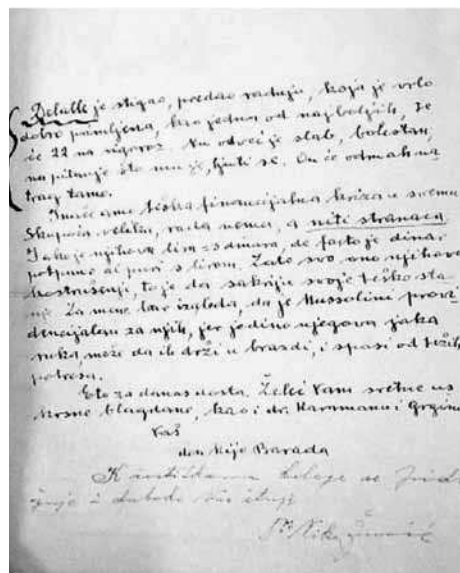 Delalle je stigao, predao radnju, koja je vrlo
dobro primljena, kao jedna od najboljih, te
će 22 na rigoroz. Nu odveć je slab, bolestan,
na pitanje što mu je, ljuti se. On će odmah na
trag tamo.
Inače ame teška financijalna kriza u svemu
Skupoća velika, rada nema, a niti stranaca
Iako je njihova lira =3 dinara, de facto je dinar
potpuno al pari s lirom. Zato svo ono njihovo
to je da sakriju svoje teško sta-
nje. Za mene bar izgleda, da je Mussolini provi
dencijalan za njih, jer jedino njegova jaka
ruka, može da ih drži u brazdi, i spasi od težih
potresa.
Eto za danas dosta. Želeć Vam sretne us
krsne blagdane, kao i dr. Karamanu i Grginu
Vaš
don Mijo Barada
K čestitkama kolege se prid
ružuje i duboko Vas štuje